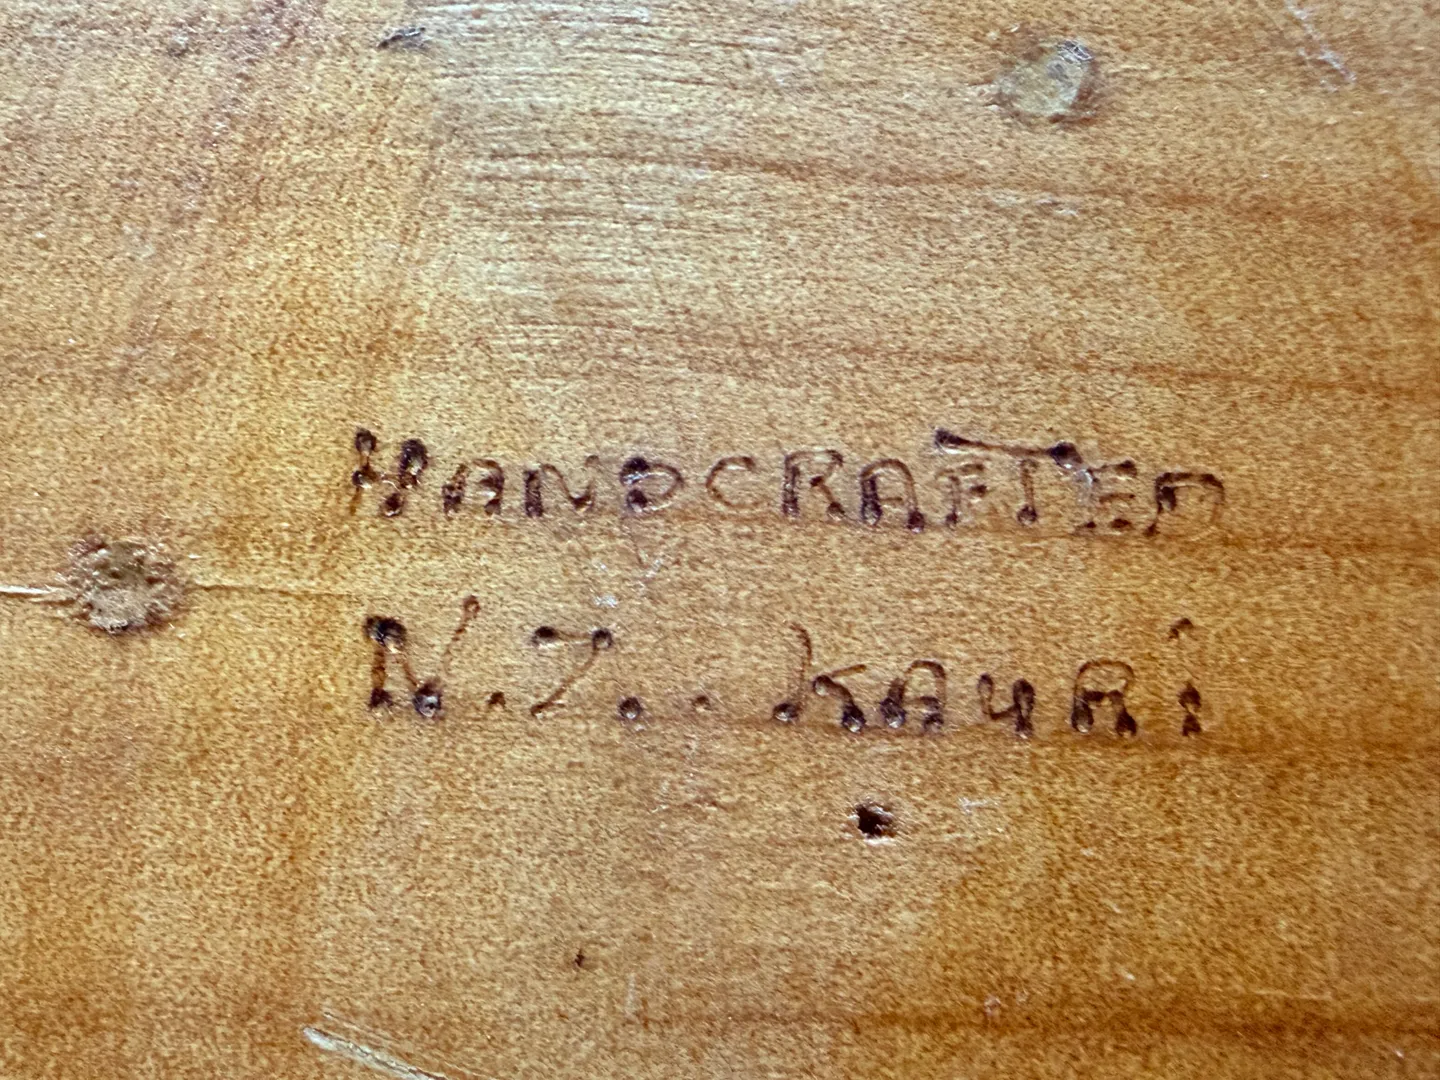 HANDCRAFTED
N.Z.. KAURi